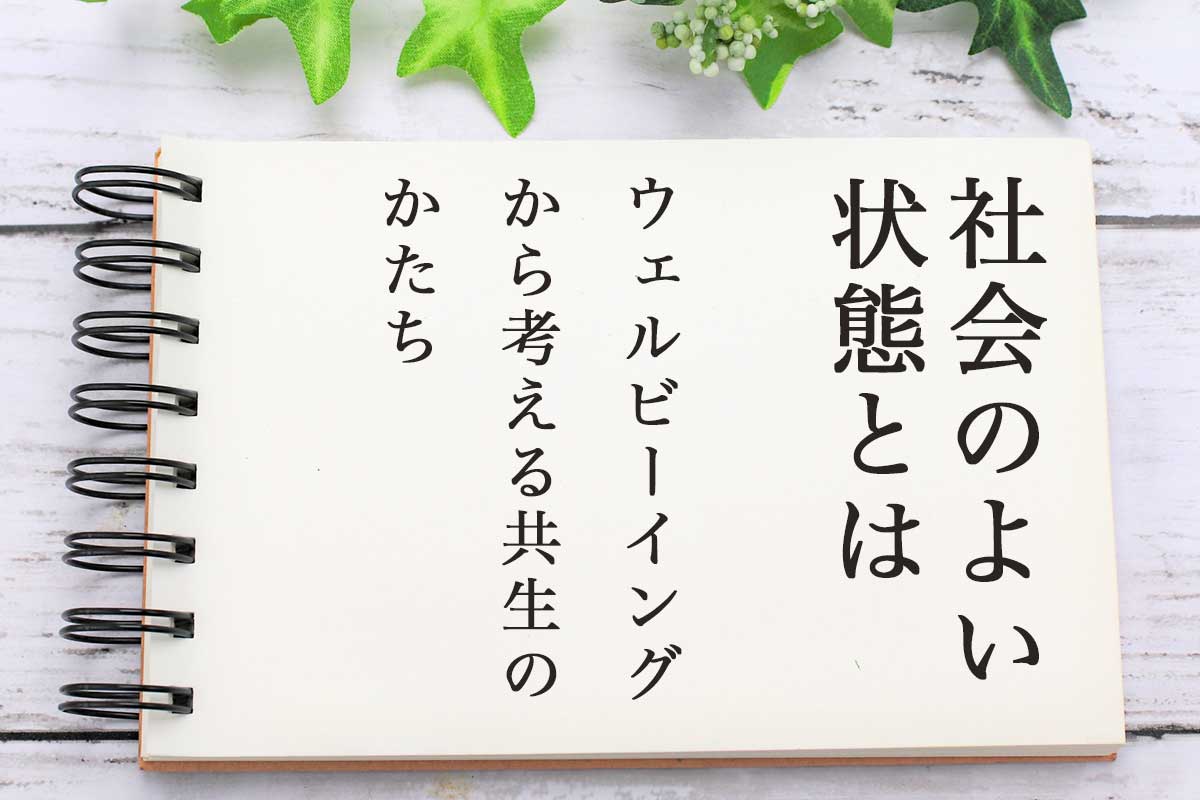 社会のよい
状態とは
ウェルビーイング
から考える共生の
かたち